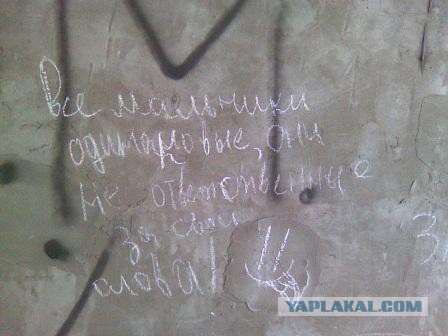 Все мальчики
одинаровые, они
не ответственные
за свои
слова!
YAPLAKAL.COM